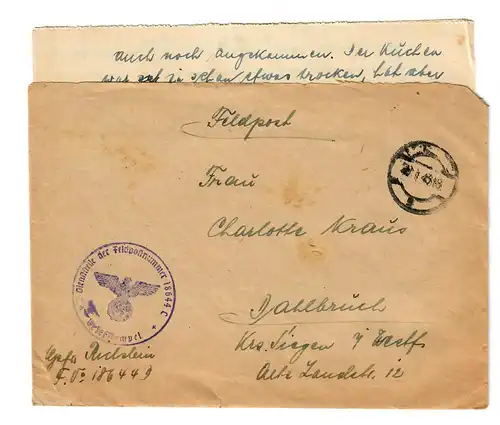 auch noch angekommen. Der Kuchen
war zwar schon etwas trocken, hat aber
Feldpost
Frau
Charlotte Kraus
Dahlbruch
Krs. Siegen i/ Westf
Alte Landstr. 12
Dienststelle der Feldpostnummer 18644 C
Briefstempel
F. No 18644 9